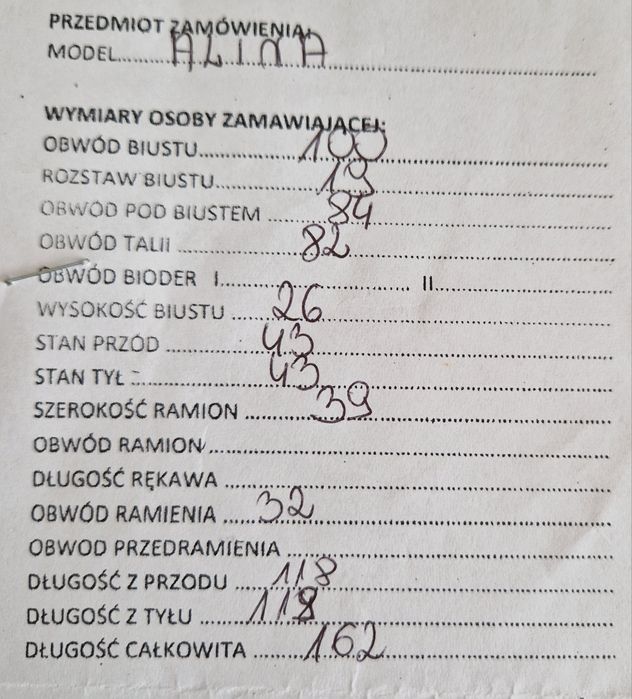 PRZEDMIOT ZAMÓWIENIA:
MODEL ALINA
WYMIARY OSOBY ZAMAWIAJĄCEJ:
OBWÓD BIUSTU 100
ROZSTAW BIUSTU 19
OBWÓD POD BIUSTEM 84
OBWÓD TALII 82
OBWÓD BIODER I II
WYSOKOŚĆ BIUSTU 26
STAN PRZÓD 43
STAN TYŁ 43
SZEROKOŚĆ RAMION 39
OBWÓD RAMION
DŁUGOŚĆ RĘKAWA
OBWÓD RAMIENIA 32
OBWOD PRZEDRAMIENIA
DŁUGOŚĆ Z PRZODU 118
DŁUGOŚĆ Z TYŁU 118
DŁUGOŚĆ CAŁKOWITA 162